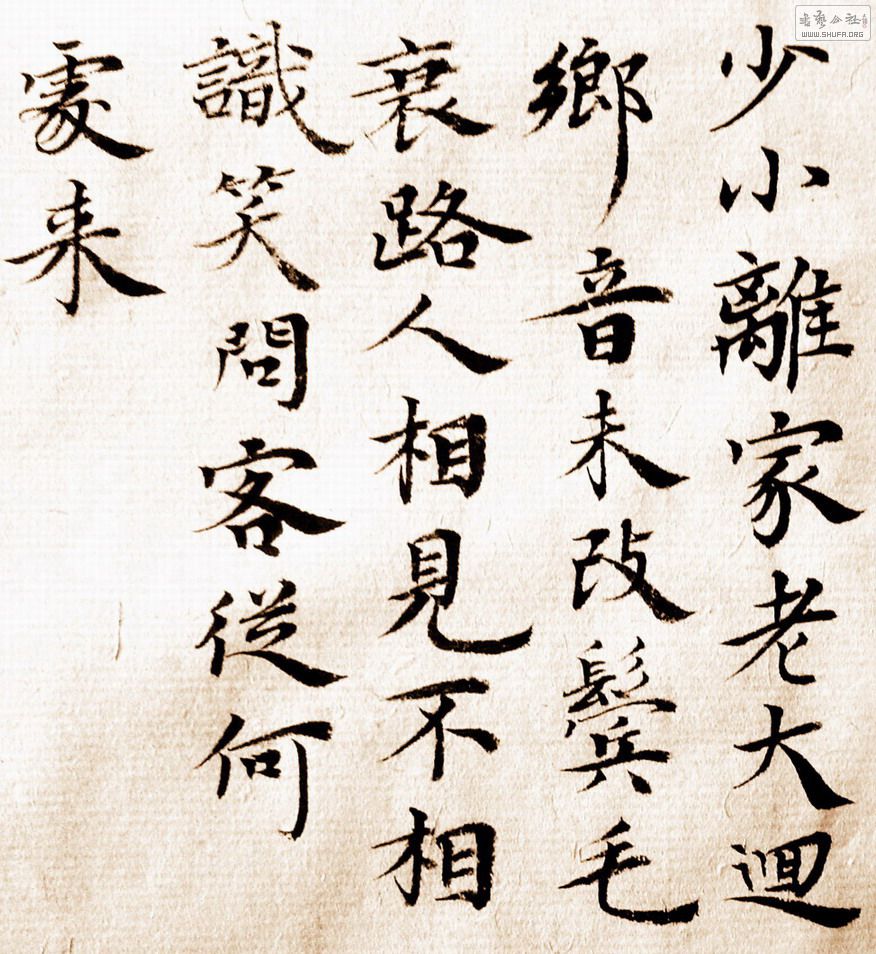 少小離家老大迴
鄉音未改鬢毛
衰路人相見不相
識笑問客從何
處来
WWW.SHUFA.ORG